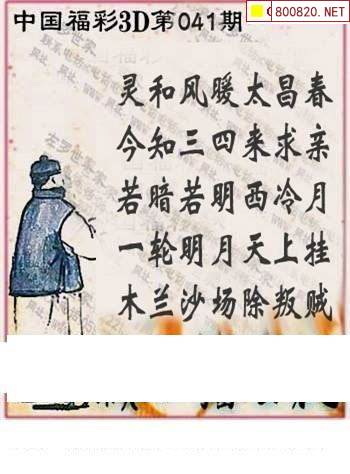 中国福彩3D第041期
800820.NET
灵和风暖太昌春
今知三四来求亲
若暗若明西冷月
一轮明月天上挂
木兰沙场除叛贼